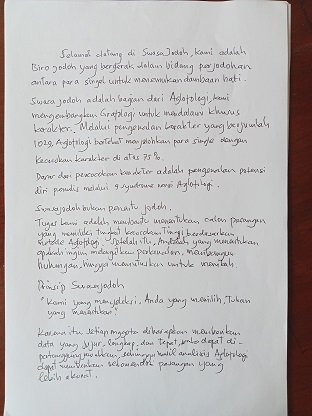 Selamat datang di SwasaJodoh, kami adalah
Biro jodoh yang bergerak dalam bidang perjodohan
antara para singel untuk menemukan dambaan hati.
Swasa jodoh adalah bagian dari Aglotologi, kami
mengembangkan Grafologi untuk mendalami khusus
karakter. Melalui pengenalan karakter yang berjumlah
1029, Aglotologi berhasil menjodohkan para single dengan
kecocokan karakter di atas 75%.
Dasar dari pencocokan karakter adalah pengenalan potensi
diri penulis melalui 9 syndrome versi Aglotologi.
Swasajodoh bukan penentu jodoh.
Tugas kami adalah membantu menentukan calon pasangan
yang memiliki tingkat kecocokan tinggi berdasarkan
metode Aglotologi. Setelah itu, Andalah yang menentukan
apakah ingin melanjutkan perkenalan, membangun
hubungan, hingga memutuskan untuk menikah
Prinsip Swasajodoh
"Kami yang menyeleksi, Anda yang memilih, Tuhan
yang menentukan"
Karena itu setiap anggota diharapkan memberikan
data yang jujur, lengkap, dan tepat, serta dapat di-
pertanggungjawabkan, sehingga hasil analisis Aglotologi
dapat memberikan rekomendasi pasangan yang
lebih akurat.